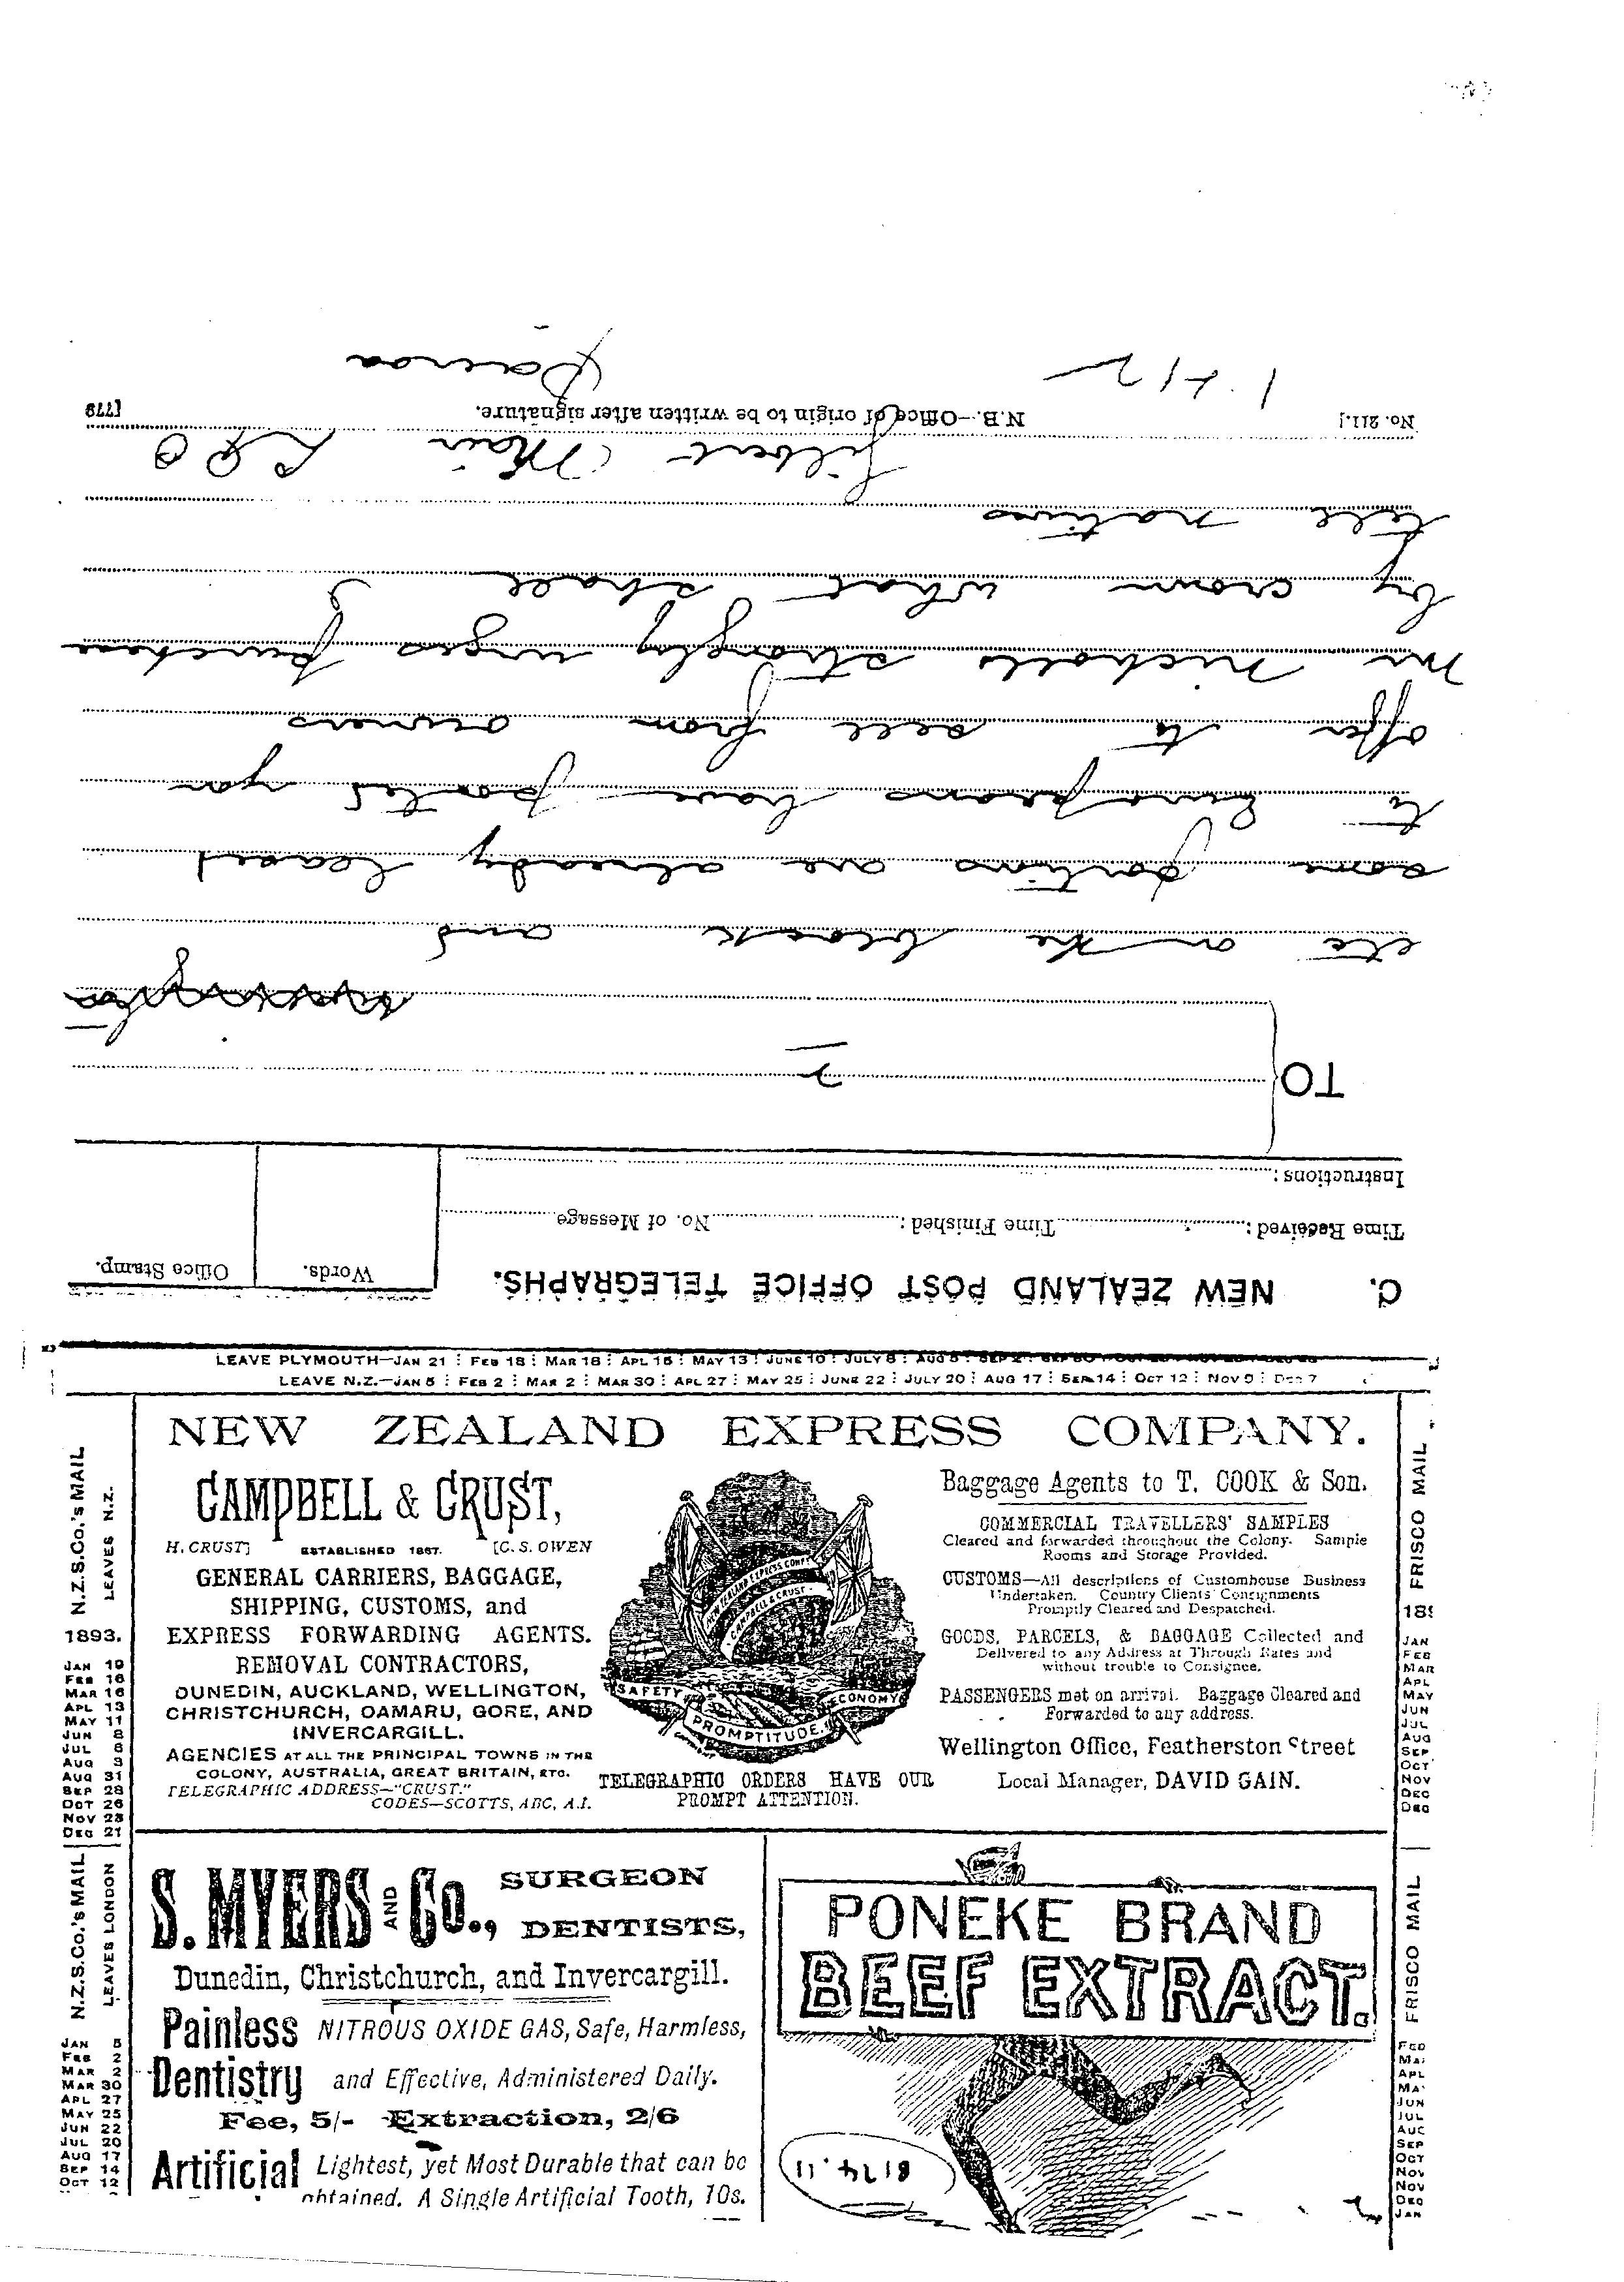 C. NEW ZEALAND POST OFFICE TELEGRAPHS.
Words. Office Stamp.
Time Received: Time Finished: No. of Message
Instructions:
TO
2
etc on the block and
some portions are already leased
to Europeans have posted you
offer to sell from owners
Mr Nicholls strongly urges purchase
by crown what shall I
tell natives
Gilbert Mair L P O
No. 211.] N.B.—Office of origin to be written after signature. [779
Paeroa
LEAVE PLYMOUTH—JAN 21 : FEB 18 : MAR 18 : APL 15 : MAY 13 : JUNE 10 : JULY 8 : AUG 5 : SEP 2 :
LEAVE N.Z.—JAN 5 : FEB 2 : MAR 2 : MAR 30 : APL 27 : MAY 25 : JUNE 22 : JULY 20 : AUG 17 : SEP 14 : OCT 12 : NOV 9 : DEC 7
NEW ZEALAND EXPRESS COMPANY.
CAMPBELL & CRUST,
H. CRUST] ESTABLISHED 1867. [C. S. OWEN
GENERAL CARRIERS, BAGGAGE,
SHIPPING, CUSTOMS, and
EXPRESS FORWARDING AGENTS.
REMOVAL CONTRACTORS,
DUNEDIN, AUCKLAND, WELLINGTON,
CHRISTCHURCH, OAMARU, GORE, AND
INVERCARGILL.
AGENCIES AT ALL THE PRINCIPAL TOWNS IN THE
COLONY, AUSTRALIA, GREAT BRITAIN, ETC.
TELEGRAPHIC ADDRESS—"CRUST."
CODES—SCOTTS, ABC, A.I.
NEW ZEALAND EXPRESS COMPY
CAMPBELL & CRUST
SAFETY
PROMPTITUDE
ECONOMY
TELEGRAPHIC ORDERS HAVE OUR
PROMPT ATTENTION.
Baggage Agents to T. COOK & Son.
COMMERCIAL TRAVELLERS' SAMPLES
Cleared and forwarded throughout the Colony. Sample
Rooms and Storage Provided.
CUSTOMS—All descriptions of Customhouse Business
Undertaken. Country Clients' Consignments
Promptly Cleared and Despatched.
GOODS, PARCELS, & BAGGAGE Collected and
Delivered to any Address at Through Rates and
without trouble to Consignee.
PASSENGERS met on arrival. Baggage Cleared and
Forwarded to any address.
Wellington Office, Featherston Street
Local Manager, DAVID GAIN.
N.Z.S.Co.'s MAIL
LEAVES N.Z.
1893.
JAN 19
FEB 16
MAR 16
APL 13
MAY 11
JUN 8
JUL 6
AUG 3
AUG 31
SEP 28
OCT 26
NOV 23
DEC 21
N.Z.S.Co.'s MAIL
LEAVES LONDON
JAN 5
FEB 2
MAR 2
MAR 30
APL 27
MAY 25
JUN 22
JUL 20
AUG 17
SEP 14
OCT 12
S. MYERS AND Co., SURGEON
DENTISTS,
Dunedin, Christchurch, and Invercargill.
Painless NITROUS OXIDE GAS, Safe, Harmless,
Dentistry and Effective, Administered Daily.
Fee, 5/- Extraction, 2/6
Artificial Lightest, yet Most Durable that can be
obtained. A Single Artificial Tooth, 10s.
PONEKE BRAND
BEEF EXTRACT.
FRISCO MAIL
JAN
FEB
MAR
APL
MAY
JUN
JUL
AUG
SEP
OCT
NOV
DEC
DEC
FRISCO MAIL
FEB
MA
APL
MA
JUN
JUL
AUG
SEP
OCT
NOV
NOV
DEC
JAN